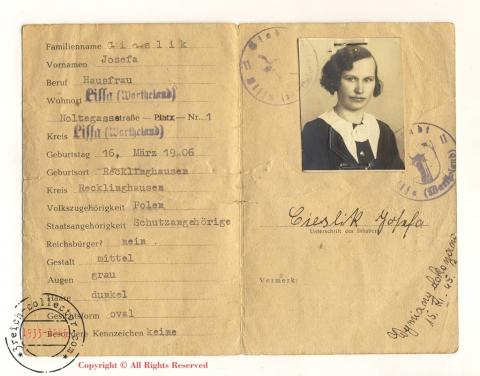 Familienname Cieslik
Vornamen Josefa
Beruf Hausfrau
Wohnort Lissa (Wartheland)
Noltegassestraße — Platz — Nr. 1
Kreis Lissa (Wartheland)
Geburtstag 16. März 1906
Geburtsort Recklinghausen
Kreis Recklinghausen
Volkszugehörigkeit Polen
Staatsangehörigkeit Schutzangehörige
Reichsbürger? nein
Gestalt mittel
Augen grau
Haare dunkel
Gesichtsform oval
Besondere Kennzeichen keine
Cieslik Josefa
Unterschrift des Inhabers
Vermerk:
15. VI. 45
3reich-collector.com
1933-1945
Copyright © All Rights Reserved